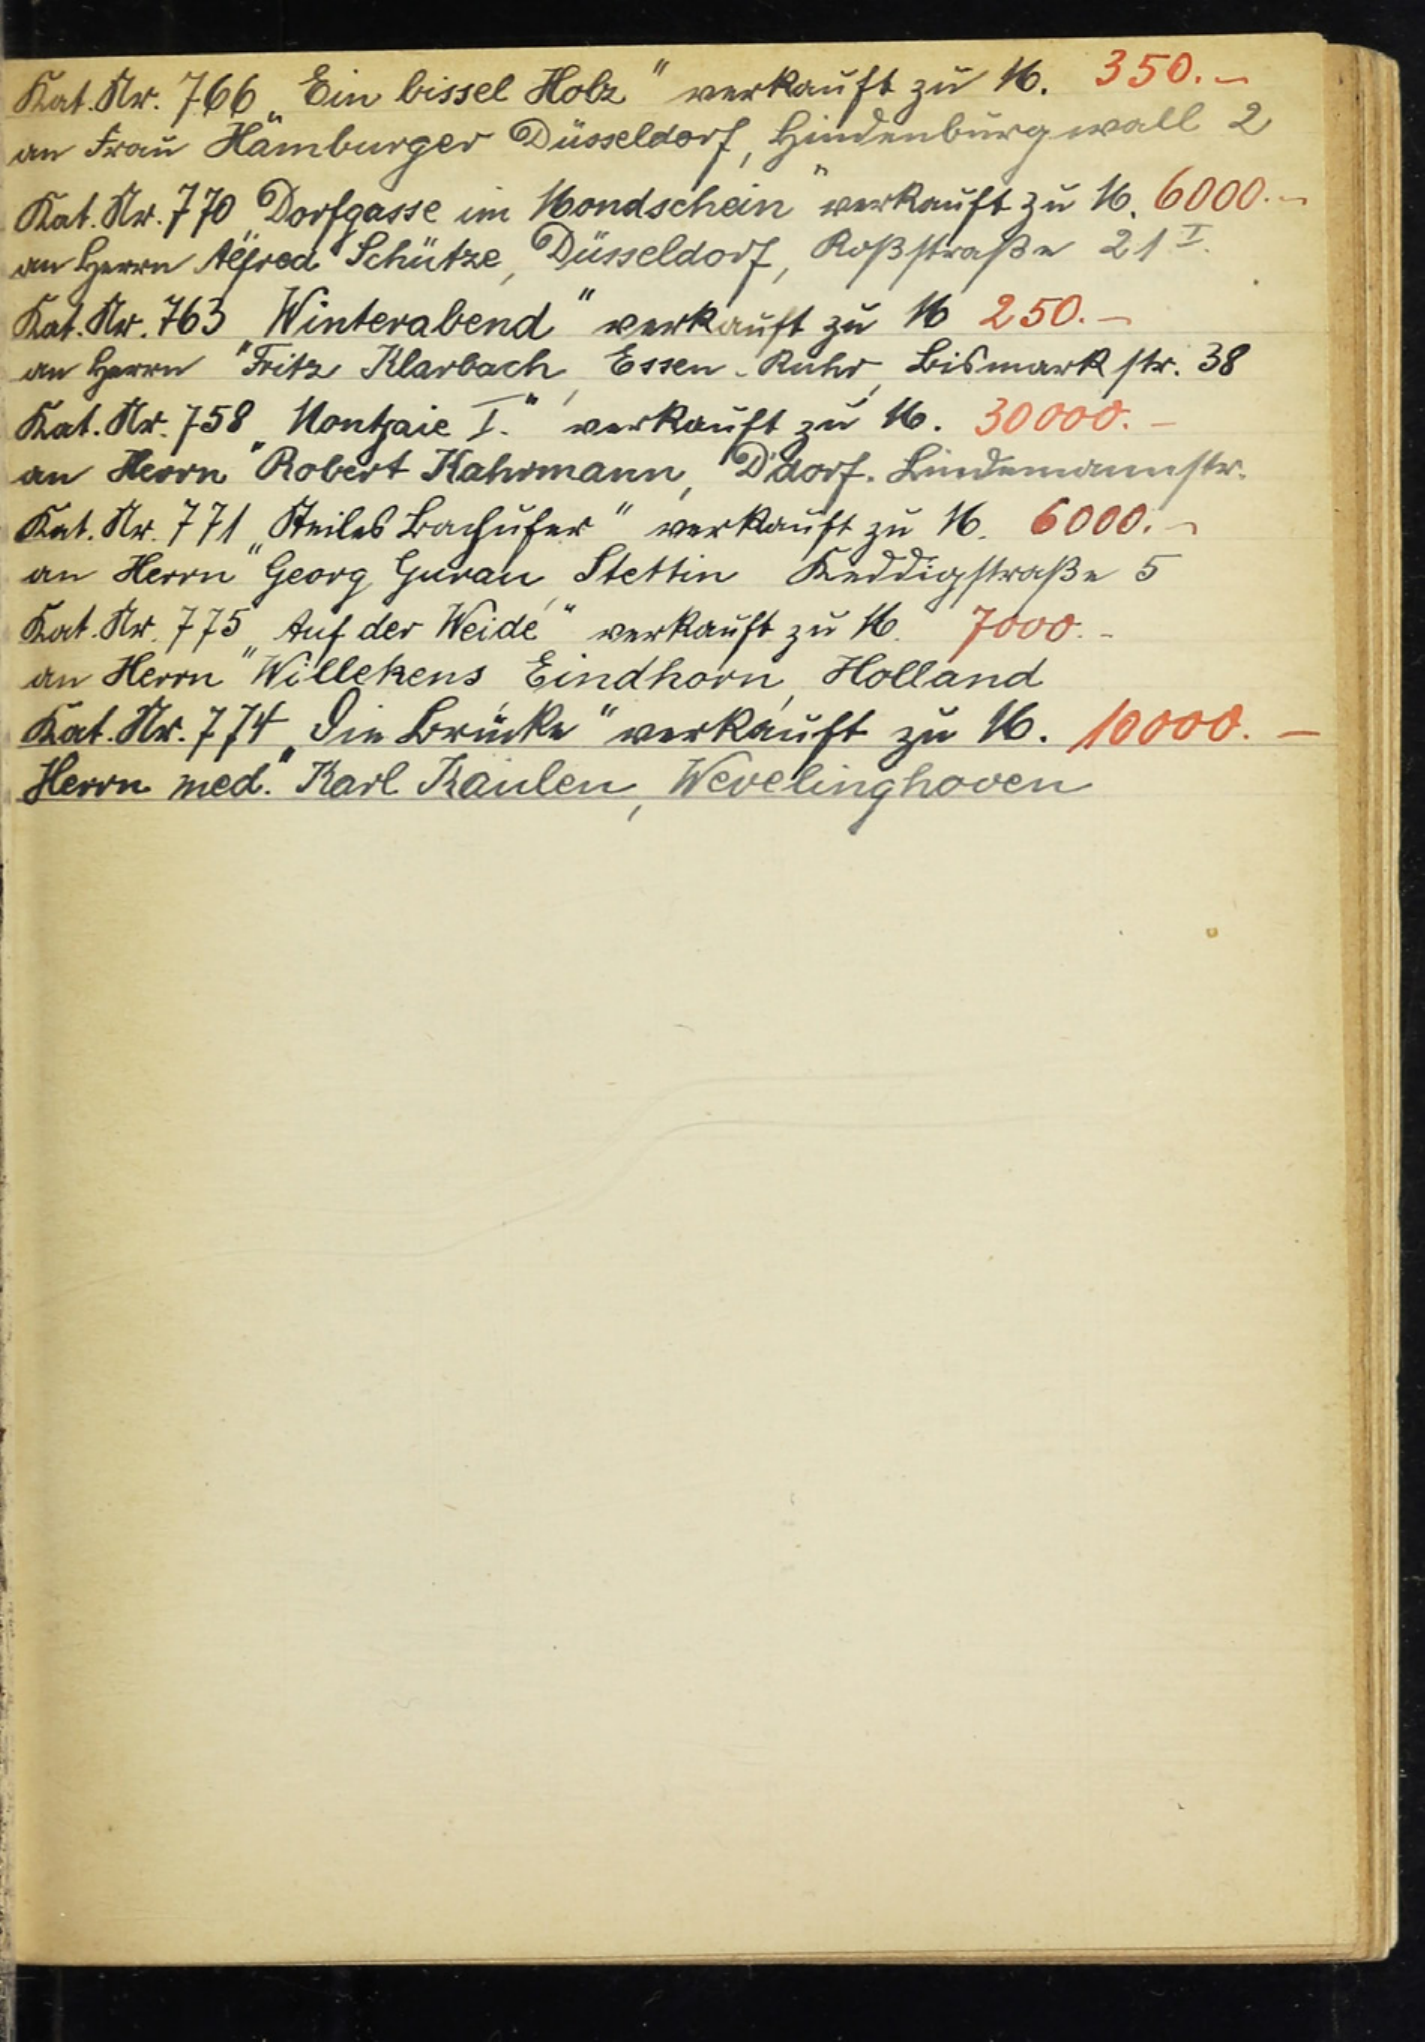 Kat. Nr. 766 „Ein bissel Holz" verkauft zu M. 350.–
an Frau Hamburger Düsseldorf, Hindenburgwall 2
Kat. Nr. 770 „Dorfgasse im Mondschein" verkauft zu M. 6000.–
an Herrn Alfred Schütze, Düsseldorf, Roßstraße 21 I.
Kat. Nr. 763 „Winterabend" verkauft zu M 250.–
an Herrn Fritz Klarbach, Essen-Ruhr, Bismarkstr. 38
Kat. Nr. 758 „Montjaie I." verkauft zu M. 30000.–
an Herrn Robert Kahrmann, D'dorf. Lindemannstr.
Kat. Nr. 771 „Steiles Bachufer" verkauft zu M. 6000.–
an Herrn Georg Guran, Stettin Keddigstraße 5
Kat. Nr. 775 „Auf der Weide" verkauft zu M. 7000.–
an Herrn Willekens, Eindhorn, Holland
Kat. Nr. 774 „Die Brücke" verkauft zu M. 10000.–
Herrn med. Karl Kaulen, Wevelinghoven